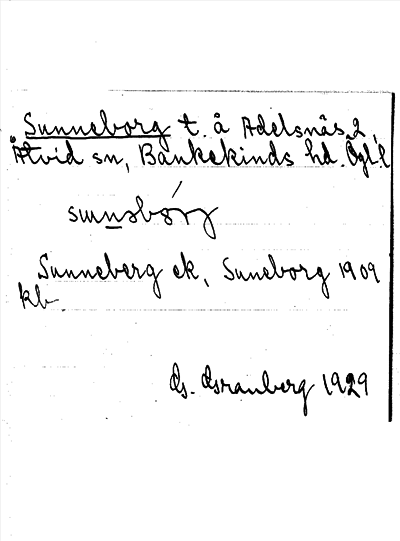 Sunneborg t. å Adelsnäs 2,
Åtvid sn, Bankekinds hd. Ögl. l
sunnsbórg
Sunneberg ek, Suneborg 1909
kb
G. Granberg 1929